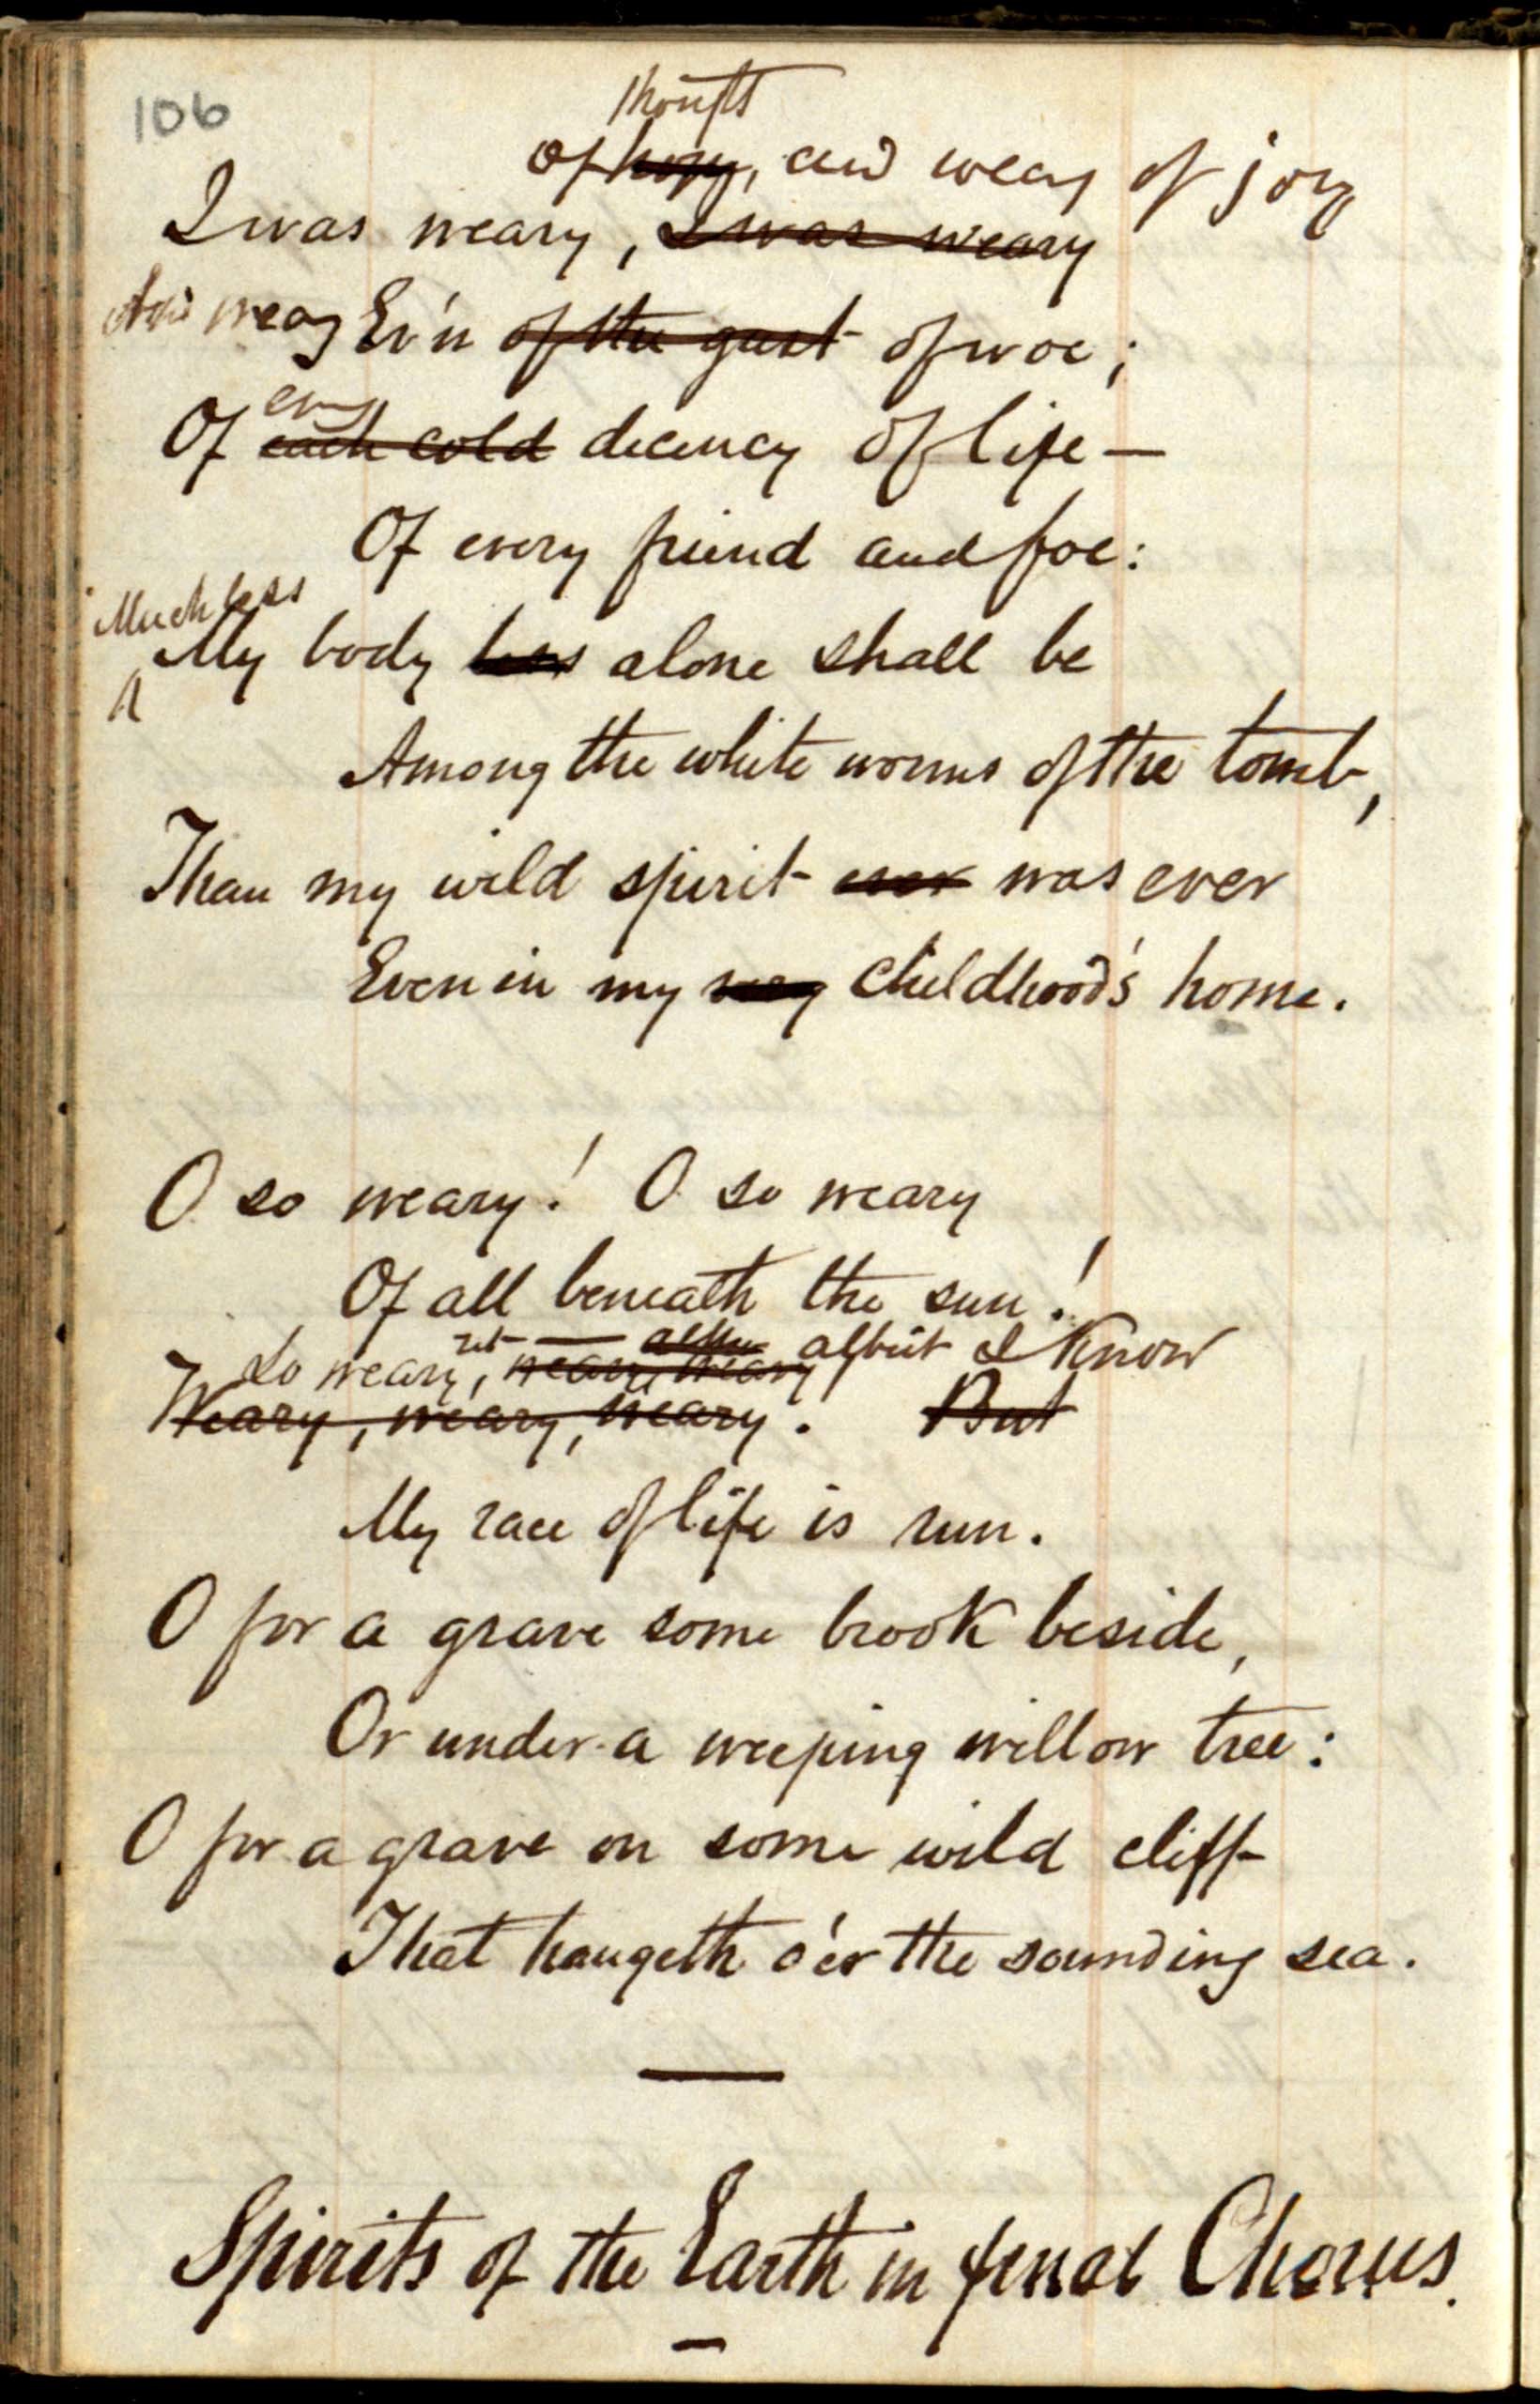 106
thought
of, and weary of joy
I was weary, I was weary
And weary Ev'n of the gust of woe;
every
Of each cold decency of life —
Of every friend and foe:
Much less
My body less alone shall be
Among the white worms of the tomb,
Than my wild spirit ever was ever
Even in my very childhood's home.
O so weary! O so weary
Of all beneath the sun!
So weary, weary, weary albeit I know
Weary, weary, weary. But
My race of life is run.
O for a grave some brook beside,
Or under a weeping willow tree:
O for a grave on some wild cliff
That hangeth o'er the sounding sea.
Spirits of the Earth in final Chorus.